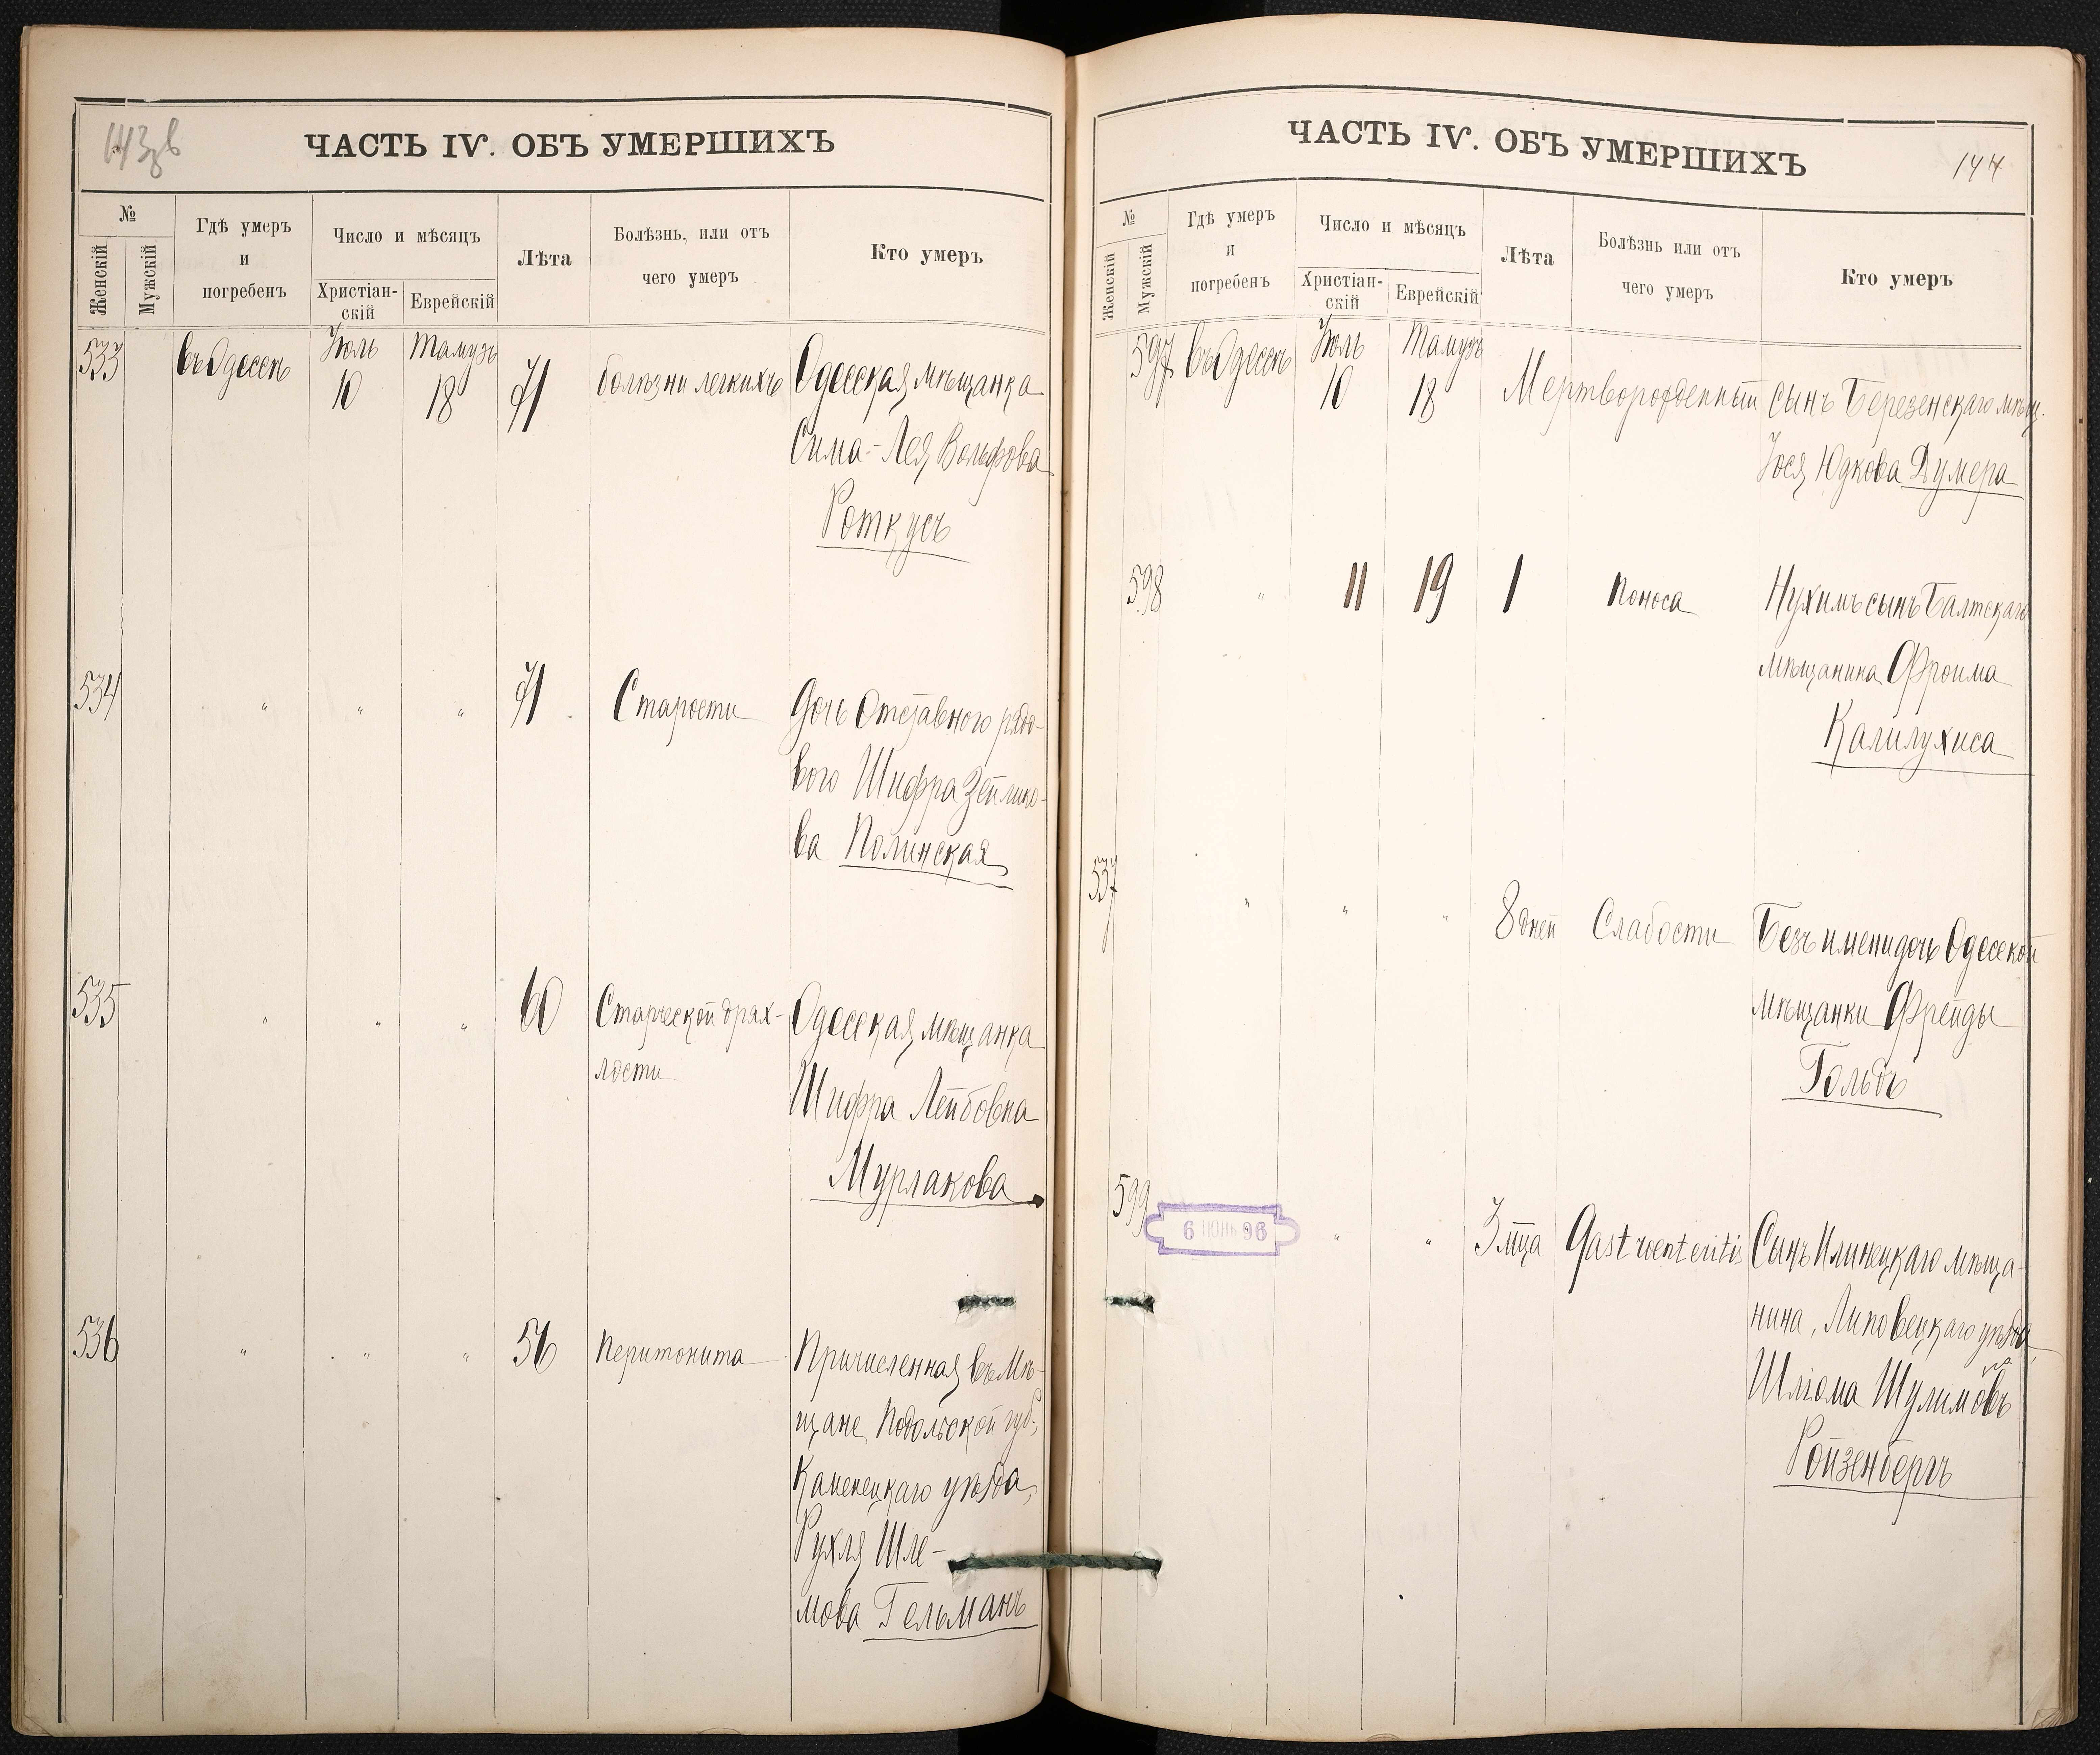 143 в
ЧАСТЬ IV. ОБЪ УМЕРШИХЪ
№
Женскій
Мужскій
Гдѣ умеръ
и
погребенъ
Число и мѣсяцъ
Христіан-
скій
Еврейскій
Лѣта
Болѣзнь, или отъ
чего умеръ
Кто умеръ
533 въ Одессѣ Іюль 10 Тамузъ 18 71 болѣзни легкихъ Одесская мѣщанка
Сима-Лея Вольфова
Роткусъ
534 " " " 71 Старости Дочь отставного рядо-
вого Шифра Зейлико-
ва Полинская
535 " " " 60 Старческой дрях- Одесская мѣщанка
лости
Шифра Лейбовна
Мурлакова
536 " " " 56 Перитонита Причисленная въ Мѣ-
щане Подольской губ.,
Каменецкаго уѣзда,
Рухля Шле-
мова Гельманъ
ЧАСТЬ IV. ОБЪ УМЕРШИХЪ
144
№
Женскій
Мужскій
Гдѣ умеръ
и
погребенъ
Число и мѣсяцъ
Христіан-
скій
Еврейскій
Лѣта
Болѣзнь или отъ
чего умеръ
Кто умеръ
597 въ Одессѣ Іюль 10 Тамузъ 18 Мертворожденный сынъ Березенскаго мѣщ.
Іося Юдкова Думера
598 " 11 19 1 Поноса Нухимъ сынъ Балтскаго
мѣщанина Фроима
Калилухиса
537 " " " 8 дней Слабости Безъ имени дочь Одесской
мѣщанки Фрейды
Гольдъ
599 6 ІЮНЬ 96 " " 3 мца Gastroenteritis Сынъ Илинецкаго мѣща-
нина, Липовецкаго уѣзда,
Шліома Шулимовъ
Ройзенбергъ